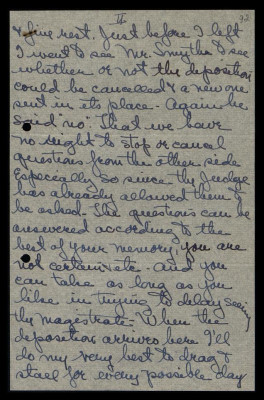 II
92
& fine rest. Just before I left
I went to see Mr. Smythe to see
whether or not the deposition
could be cancelled & a new one
sent in its place. Again he
said 'no'. That we have
no right to stop or cancel
questions from the other side
Especially so since the Judge
has already allowed them to
be asked. The questions can be
answered according to the
best of your memory, you are
not certain etc. And you
can take as long as you
like in trying to delay seeing
the magistrate. When the
deposition arrives here I'll
do my very best to drag &
stall for every possible day